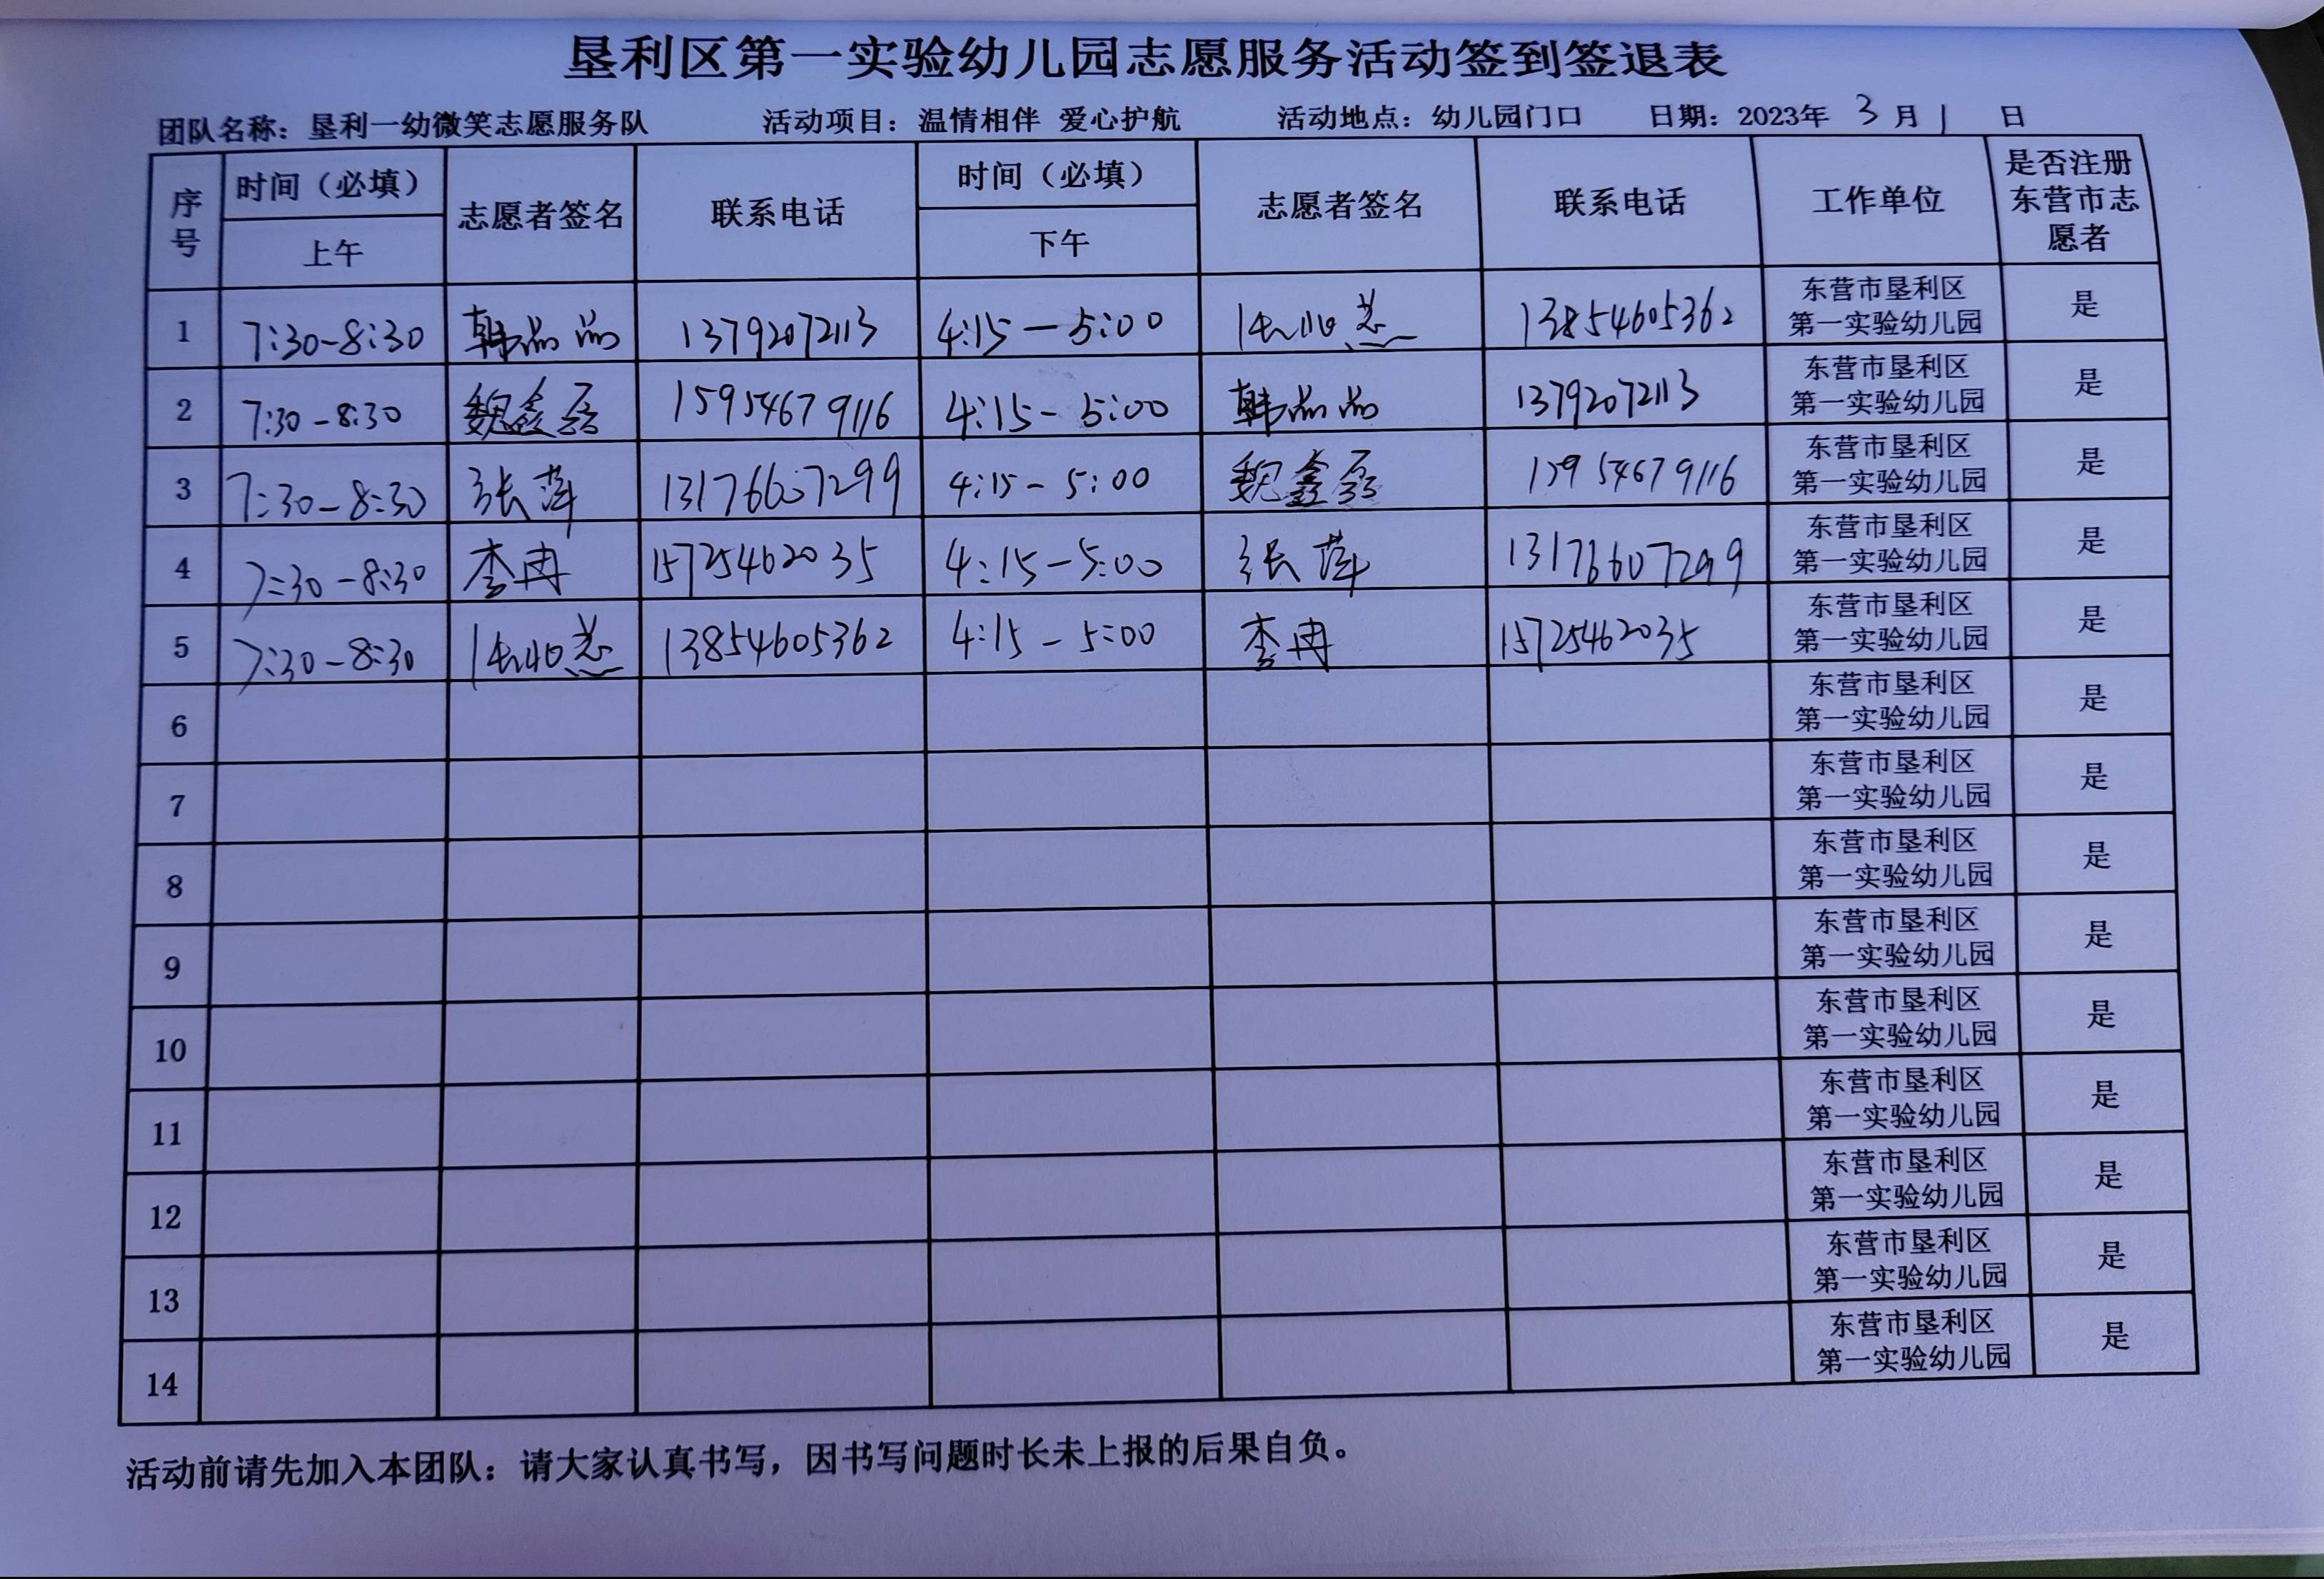 垦利区第一实验幼儿园志愿服务活动签到签退表
团队名称：垦利一幼微笑志愿服务队 活动项目：温情相伴 爱心护航 活动地点：幼儿园门口 日期：2023年 3 月 1 日
序号 时间（必填） 上午 志愿者签名 联系电话 时间（必填） 下午 志愿者签名 联系电话 工作单位 是否注册东营市志愿者
1 7:30-8:30 韩晶晶 13792072113 4:15-5:00 13854605362 东营市垦利区第一实验幼儿园 是
2 7:30-8:30 魏鑫磊 15954679116 4:15-5:00 韩晶晶 13792072113 东营市垦利区第一实验幼儿园 是
3 7:30-8:30 张萍 13176607299 4:15-5:00 魏鑫磊 15954679116 东营市垦利区第一实验幼儿园 是
4 7:30-8:30 李冉 15725462035 4:15-5:00 张萍 13176607299 东营市垦利区第一实验幼儿园 是
5 7:30-8:30 13854605362 4:15-5:00 李冉 15725462035 东营市垦利区第一实验幼儿园 是
6 东营市垦利区第一实验幼儿园 是
7 东营市垦利区第一实验幼儿园 是
8 东营市垦利区第一实验幼儿园 是
9 东营市垦利区第一实验幼儿园 是
10 东营市垦利区第一实验幼儿园 是
11 东营市垦利区第一实验幼儿园 是
12 东营市垦利区第一实验幼儿园 是
13 东营市垦利区第一实验幼儿园 是
14 东营市垦利区第一实验幼儿园 是
活动前请先加入本团队：请大家认真书写，因书写问题时长未上报的后果自负。